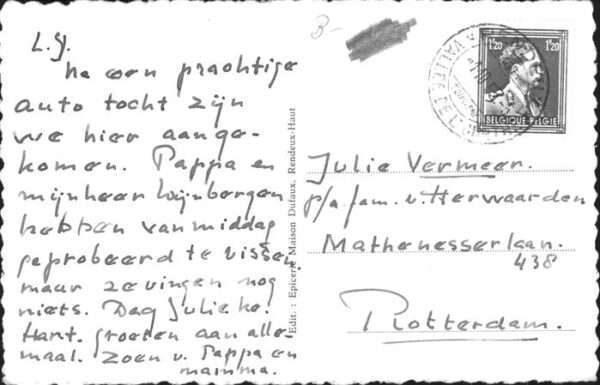 L.J.
Na een prachtige
auto tocht zijn
we hier aange-
komen. Pappa en
mijnheer Wijnbergen
hebben vanmiddag
geprobeerd te vissen,
maar ze vingen nog
niets. Dag Julieke!
Hart. groeten aan alle-
maal. Zoen v. Pappa en
mamma.
Edit. : Epicerie Maison Dufaux, Rendeux-Haut
3-
1F20 1F20
BELGIQUE-BELGIE
Julie Vermeer.
p/a fam. v. Herwaarden
Mathenesserlaan.
438
Rotterdam.